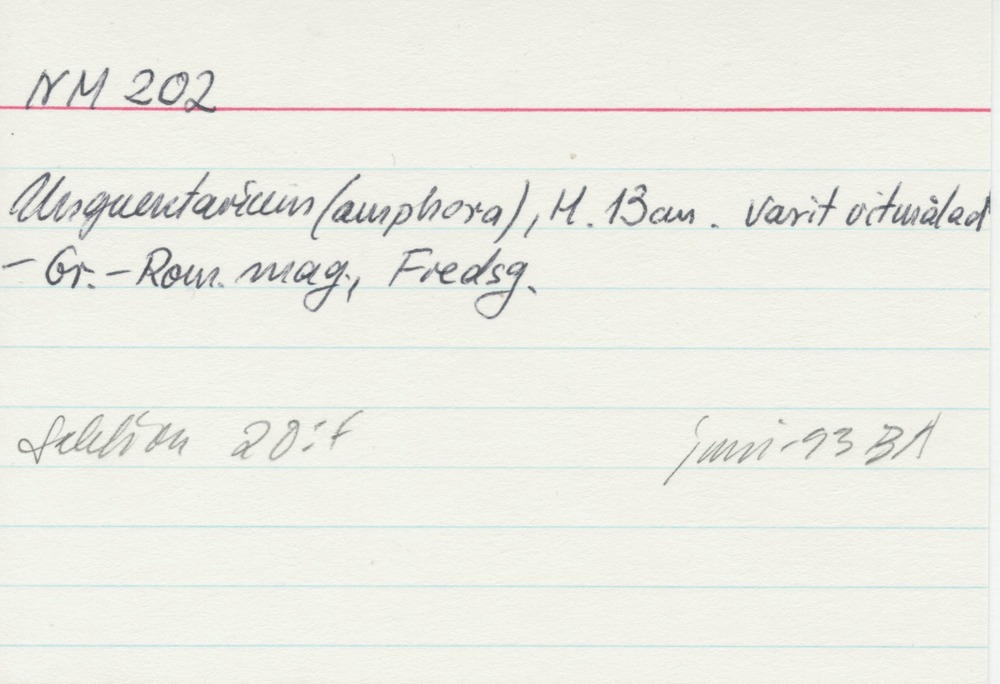 NM 202
Unguentarium (amphora), H. 13 cm. Varit vitmålad
- Gr.-Rom. mag., Fredsg.
Sektion 20:f juni-93 BA